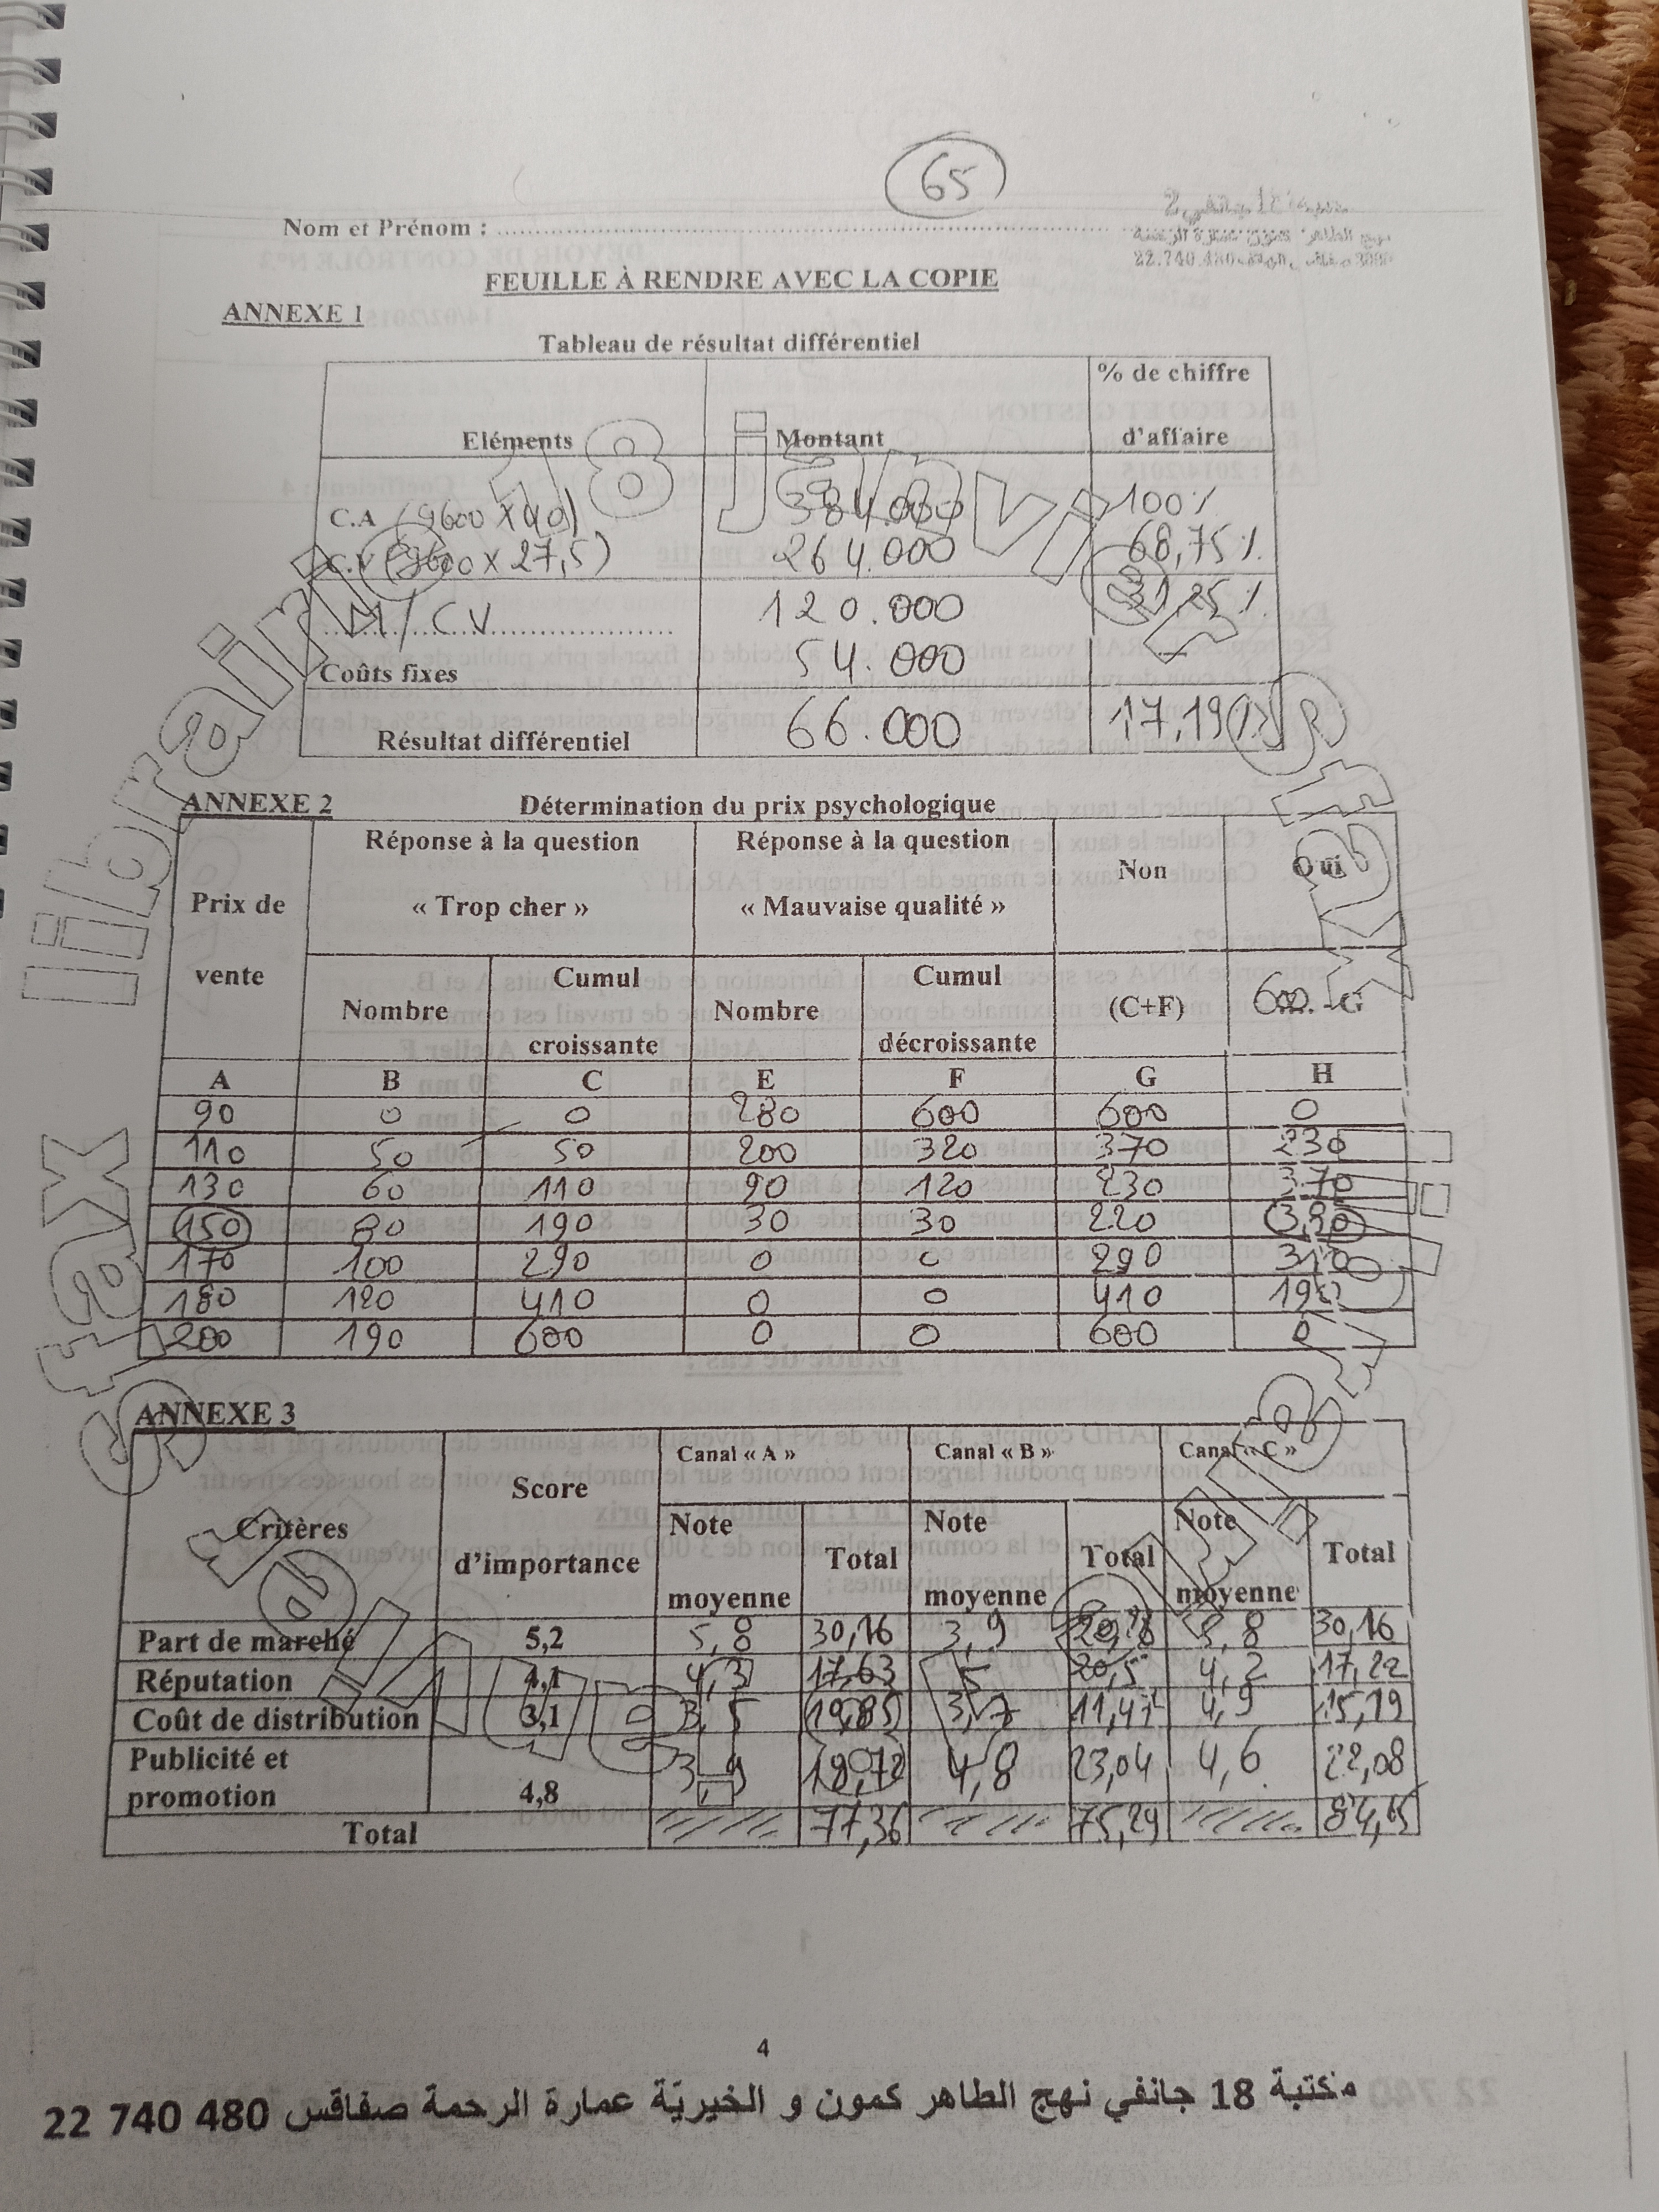 65
Nom et Prénom : ........................
22.740.480
FEUILLE À RENDRE AVEC LA COPIE
ANNEXE 1
Tableau de résultat différentiel
Eléments Montant % de chiffre d'affaire
C.A (9600 x 40) 384.000 100%
C.V (9600 x 27,5) 264.000 68,75%
M/CV 120.000 31,25%
Coûts fixes 54.000
Résultat différentiel 66.000 17,19%
ANNEXE 2 Détermination du prix psychologique
Prix de vente Réponse à la question « Trop cher » Réponse à la question « Mauvaise qualité » Non Oui
Nombre Cumul croissante Nombre Cumul décroissante (C+F) 600 - G
A B C E F G H
90 0 0 280 600 600 0
110 50 50 200 320 370 230
130 60 110 90 120 230 370
150 80 190 30 30 220 380
170 100 290 0 0 290 310
180 120 410 0 0 410 190
200 190 600 0 0 600 0
ANNEXE 3
Critères Score d'importance Canal « A » Canal « B » Canal « C »
Note moyenne Total Note moyenne Total Note moyenne Total
Part de marché 5,2 5,8 30,16 3,9 20,28 5,8 30,16
Réputation 4,1 4,3 17,63 5 20,5 4,2 17,22
Coût de distribution 3,1 3,5 3,7 11,47 4,9 15,19
Publicité et promotion 4,8 3,9 18,72 4,8 23,04 4,6 22,08
Total 77,36 75,29 84,65
librairie 18 janvier
sfax
4
مكتبة 18 جانفي نهج الطاهر كمون و الخيرية عمارة الرحمة صفاقس 480 740 22